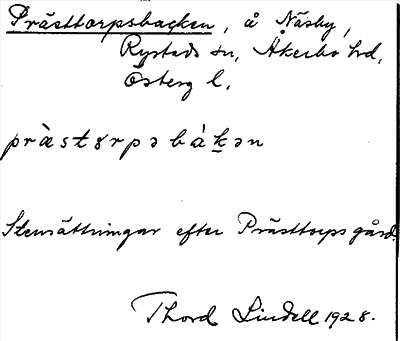 Prästtorpsbacken, å Näsby,
Rystads sn, Åkerbo hd,
Österg l.
præ̀stɷrpɔbákən
Stensättningar efter Prästtorps gård.
Thord Lindell 1928.